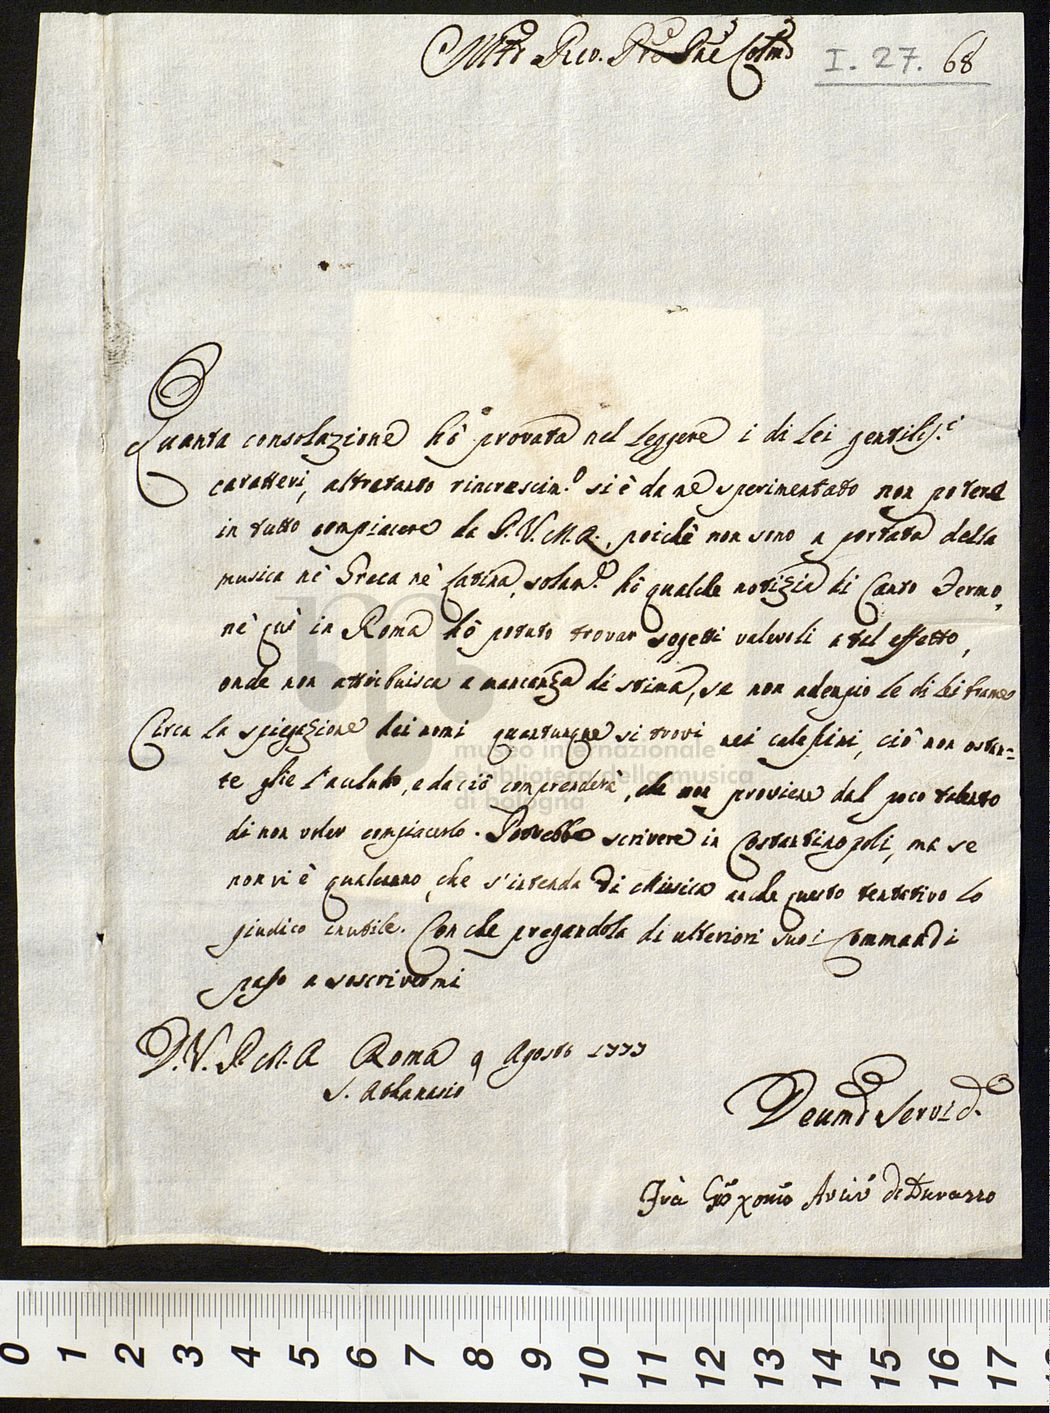 Mto Rev. Pre Pne Colmo
I. 27. 68
Quanta consolazione hô provata nel Leggere i di Lei gentiliss.i
caratteri, altretanto rincrescim.o si è da me sperimentato non potere
in tutto compiacere la P. V. M. R., poichê non sono a portata della
musica nè Greca nè Latina, solam.e hô qualche notizia di Canto Fermo,
nè quì in Roma hô potuto trovar sogetti valevoli a tal effetto,
onde non attribuisca a mancanza di stima, se non adempio le di lei brame
Circa la spiegazione dei nomi quantunque si trovi nei calepini, ciò non ostan=
te glie l'acludo, e da ciò comprenderà, che non proviene dal poco talento
di non voler compiacerlo. Potrebbe scrivere in Costantinopoli, ma se
non vi è qualcuno, che s'intenda di Musica anche questo tentativo lo
giudico inutile. Con che pregandola di ulteriori suoi Commandi
passo a soscrivermi
D. V. P. M. R. Roma 9 Agosto 1777
S. Athanasio
Devmo Servid.e
Frà Arciv.o di Durazzo
museo internazionale
e biblioteca della musica
di bologna
0 1 2 3 4 5 6 7 8 9 10 11 12 13 14 15 16 17